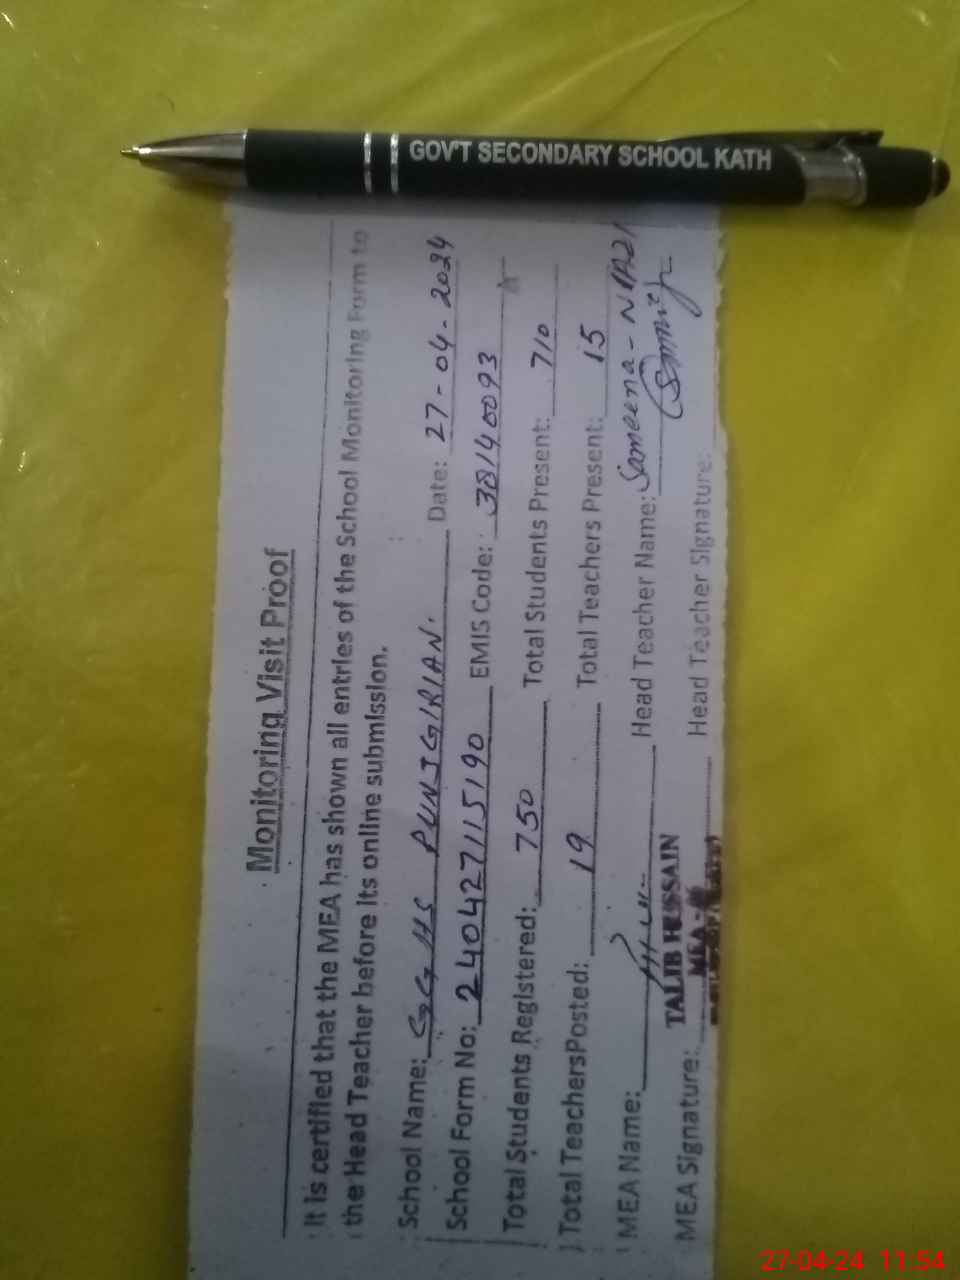 GOV'T SECONDARY SCHOOL KATH
Monitoring Visit Proof
It is certified that the MEA has shown all entries of the School Monitoring Form to
the Head Teacher before its online submission.
School Name: GGHS PUNJGIRIAN. Date: 27-04-2024
School Form No: 240427115190 EMIS Code: 38140093
Total Students Registered: 750 Total Students Present: 710
Total TeachersPosted: 19 Total Teachers Present: 15
MEA Name: Head Teacher Name: Sameena-NIAZI
TALIB HUSSAIN
MEA Signature: MEA- Head Teacher Signature:
27-04-24 11:54